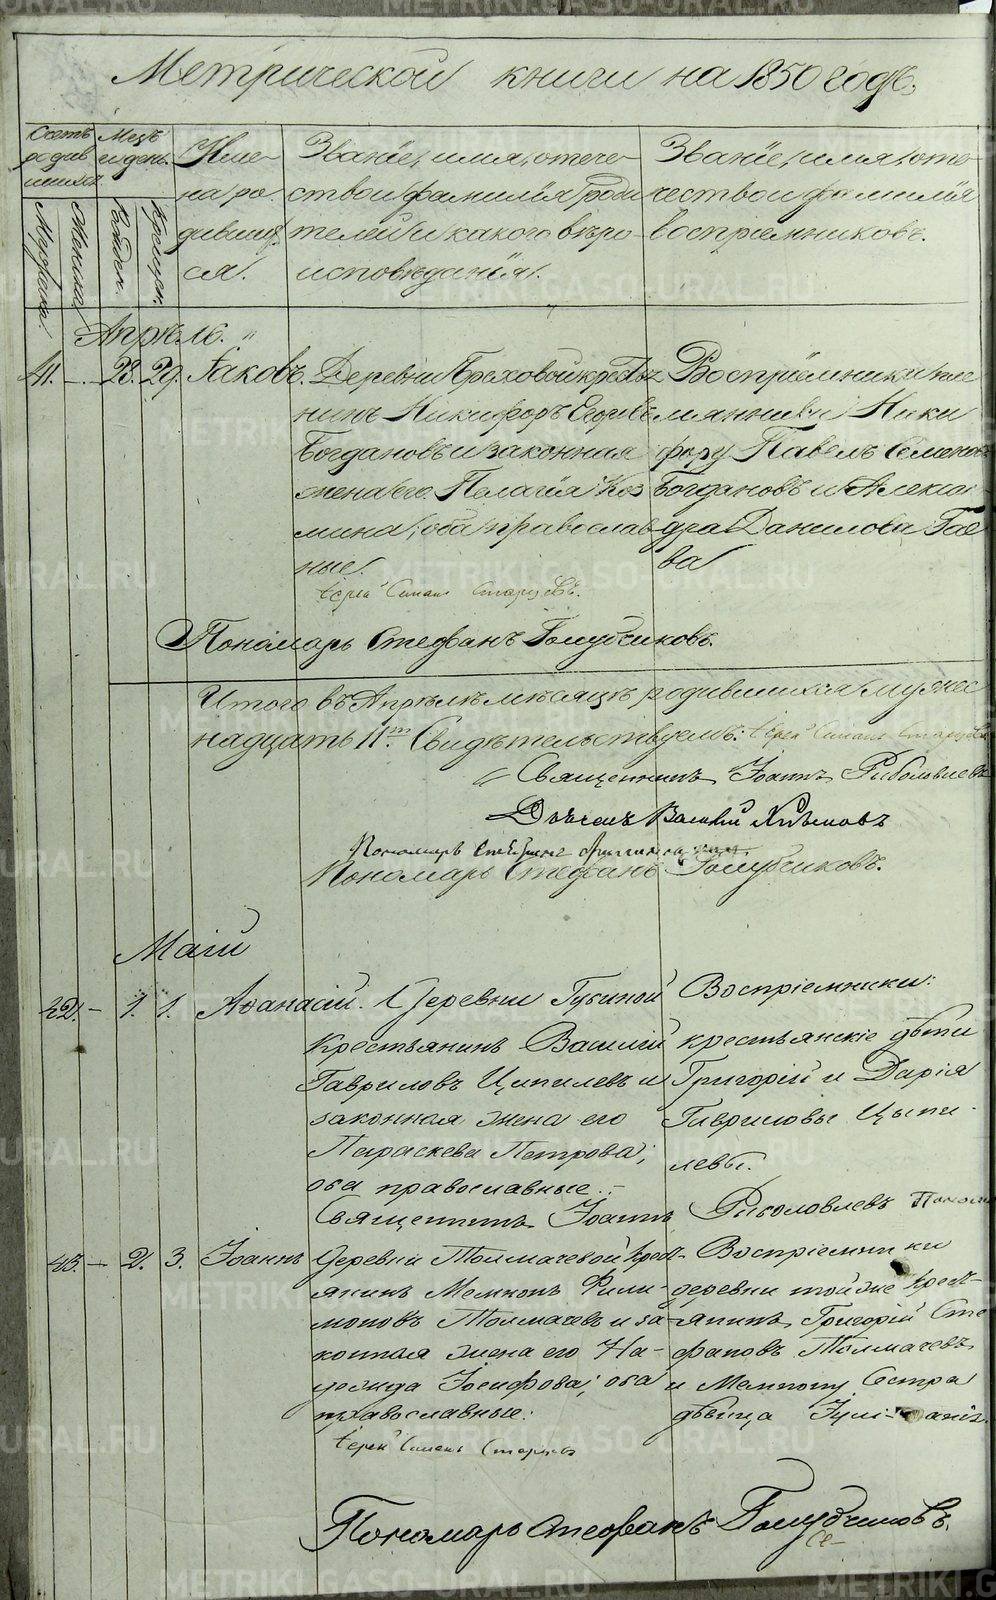 Метрической книги на 1850 годъ.
Счетъ родившихся
Мужеска.
Женска.
Мцъ и день.
Рожден.
Крещен.
Имена родившихся.
Званіе, имя, отече-
ство и фамилія роди
телей и какого вѣро-
исповѣданія.
Званіе, имя, оте-
чество и фамилія
воспріемниковъ.
Апрѣль.
41. - 28. 29. Іаковъ.
Деревни Ереховой крестья
нинъ Никифоръ Егоровъ
Богдановъ и законная
жена его Пелагія Коз
мина, оба православ
ные.
Воспріемники: пле
мянникъ Ники
фору Павелъ Семеновъ
Богдановъ и Алексан-
дра Данилова Гае
ва
Іерей Симеонъ Старцевъ.
Пономарь Стефанъ Голубчиковъ.
Итого въ Апрѣлѣ мѣсяцѣ родившихся мужес
надцать 11ть. Свидѣтельствуемъ: Іерей Симеонъ Старцевъ
Священникъ Іоаннъ Рыболовлевъ
Дьячекъ Василій Хлѣновъ
Пономарь
Пономарь Стефанъ Голубчиковъ.
Маій
42. - 1. 1. Аѳанасій.
Деревни Губиной
крестьянинъ Василій
Гавриловъ Ципилевъ и
законная жена его
Параскева Петрова;
оба православные. -
Воспріемники:
крестьянскіе дѣти
Григорій и Дарія
Гавриловы Цыпи-
левы.
Священникъ Іоаннъ Рыболовлевъ Поном
43. - 2. 3. Іоаннъ
Деревни Толмачевой крест-
янинъ Мемнонъ Фили-
моновъ Толмачевъ и за-
конная жена его На-
дежда Іосифова; оба
православные.
Воспріемники
деревни тойже крест-
янинъ Григорій Сте
фановъ Толмачевъ
и Мемнону Сестра
дѣвица
Іерей Симеонъ Старцевъ
Пономарь Стефанъ Голубчиковъ.
METRIKI.GASO-URAL.RU